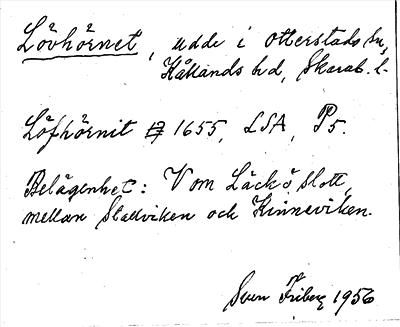 Lövhörnet, udde i Otterstads sn,
Kållands hd, Skarab. l.
Löfhörnit 1655, LSA, P5.
Belägenhet: V om Läckö slott,
mellan Stadviken och Kinneviken.
Sven Friberg 1956